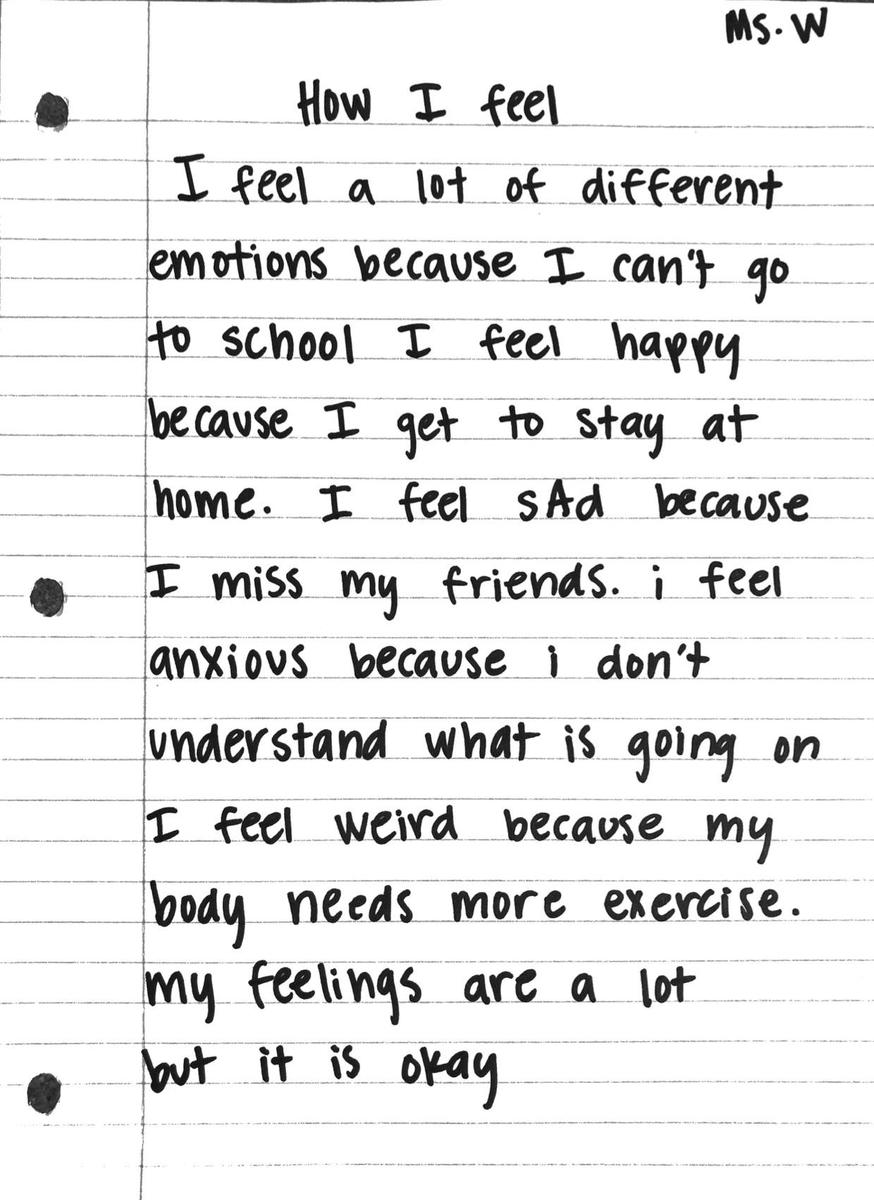 Ms. W
How I feel
I feel a lot of different
emotions because I can't go
to school I feel happy
because I get to stay at
home. I feel sAd because
I miss my friends. i feel
anxious because i don't
understand what is going on
I feel weird because my
body needs more exercise.
my feelings are a lot
but it is okay